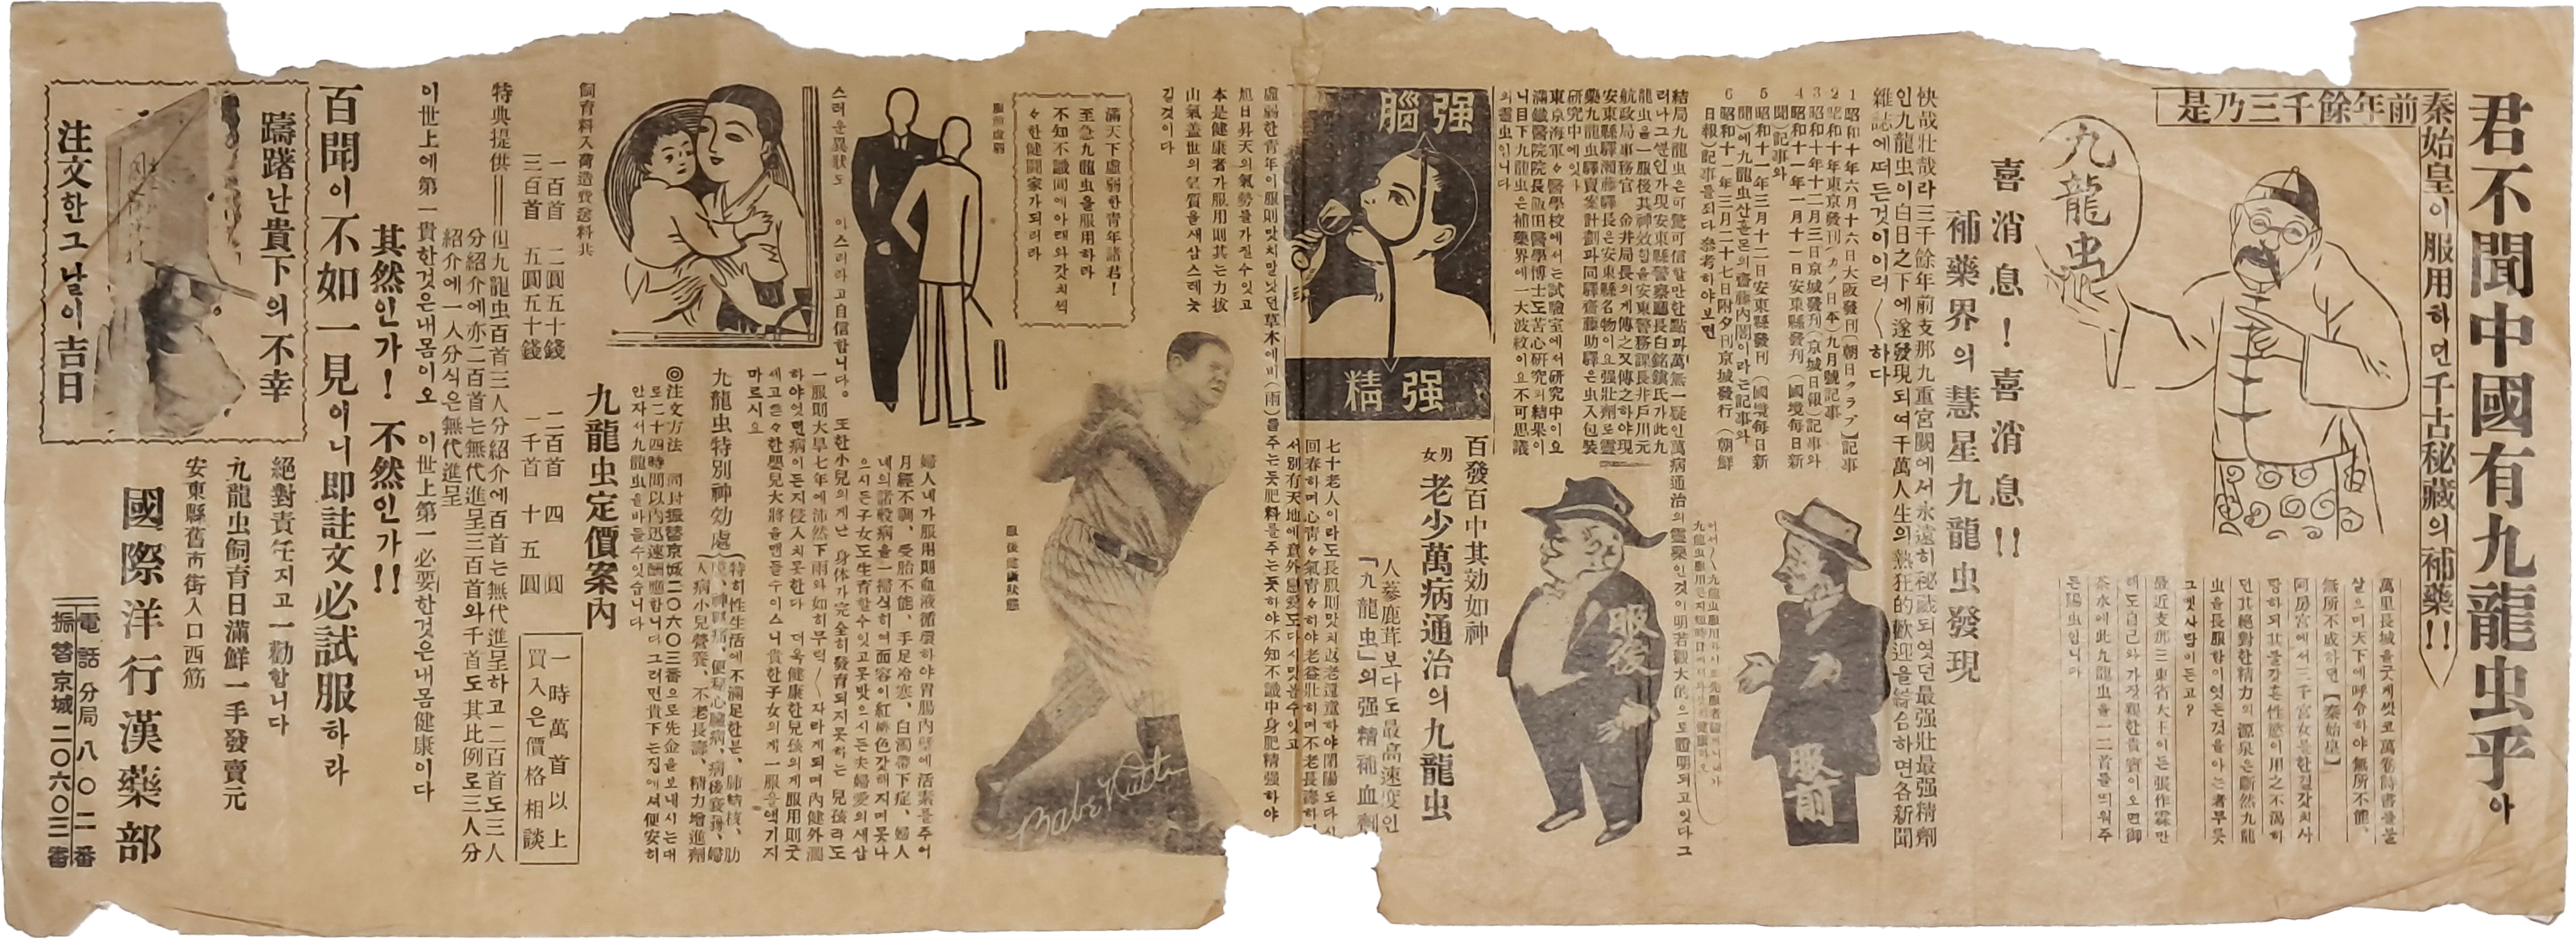 君不聞中國有九龍虫乎아
秦始皇이服用하던千古秘藏의補藥!!
是乃三千餘年前
九龍虫
萬里長城을굿게쌋코萬卷詩書를불
살으며天下에呼令하야無所不能、
無所不成하던【秦始皇】
阿房宮에서三千宮女를한길갓치사
랑하되北불갓흔性慾이用之不渴히
던其絕對한精力의源泉은斷然九龍
虫을長服함이엿든것을아는者부릇
그멧사람이든고?
最近支那三東省大王이든張作霖만
해도自己와가장親한貴賓이오면御
茶水에此九龍虫을一二首를띄워주
든陽虫입니다
喜消息!喜消息!!
補藥界의慧星九龍虫發現
快哉壯哉라三千餘年前支那九重宮闕에서永遠히秘藏되엿던最强壯最强精劑
인九龍虫이白日之下에遂發現되여千萬人生의熱狂的歡迎을綜合하면各新聞
雜誌에떠든것이이러〱하다
1 昭和十年六月十六日大阪發刊(朝日クラブ)記事
2 昭和十年東京發刊(カノ日本)九月號記事
3 昭和十年十二月三日京城發刊(京城日報)記事와
4 昭和十一年一月十一日安東縣發刊(國境每日新
聞)記事와
5 昭和十一年三月十二日安東縣發刊(國境每日新
聞)에九龍虫산을몬의齋藤內閣이라는記事와
6 昭和十一年三月二十七日附夕刊京城發行(朝鮮
日報)記事를最다參考하야보면
服前
服後
結局九龍虫은可驚可信할만한點과萬無一疑인萬病通治의靈藥인것이明若觀火的으로證明되고잇다그
러나그뿐인가現安東縣警察廳長白銘鎭氏가此九
龍虫을一服後其神效함을安東警務課長井戶川元
航政局事務官 金井局長의게傳之又傳之하야現
安東縣驛瀬藤驛長은安東縣名物이요强壯劑로靈
藥九龍虫驛賣案計劃과同驛齋藤助驛은虫入包裝
研究中에잇다
東京海軍々醫學校에서는試驗室에서研究中이요
滿鐵醫院院長飯田醫學博士도苦心研究의結果이
니目下九龍虫은補藥界에一大波紋이요不可思議
의靈虫입니다
强腦
强精
百發百中其効如神
男女老少萬病通治의九龍虫
人蔘鹿茸보다도最高速度인
「九龍虫」의强精補血劑
七十老人이라도長服則맛치返老還童하야閉陽도다시
回春하며心靑々氣靑々히야老益壯히며不老長壽하며
서別有天地에意外戀愛도다시맛볼수잇고
虛弱한靑年이服則맛치말낫던草木에비(雨)를주는듯肥料를주는듯하야不知不識中身肥精强하야
旭日昇天의氣勢를가질수잇고
本是健康者가服用則其는力拔
山氣盖世의그質을새삼스레늣
길것이다
滿天下虛弱한靑年諸君!
至急九龍虫을服用하라
不知不識間에아래와갓치씩
々한健鬪家가되리라
服前虛弱
服後健康狀態
Babe Ruth
婦人네가服用則血液循環하야胃腸內壁에活素를주어
月經不調、受胎不能、手足冷寒、白濁帶下症、婦人
네의諸般病을一掃식히여面容이紅桃色갓해지며못나
으시든子女도生育할수잇고못밧으시든夫婦愛의세삼
스러운異狀도 이스리라고自信합니다。 또한小兒의게난 身体가完全히發育되지못하는 兒孩라도
一服則大旱七年에沛然下雨와如히무럭〱자라게되며內健外潤
하야엇떤病이든지侵入치못한다 더욱健康한兒孩의게服用則굿
세고튼々한嬰兒大將을맨들수이스니貴한子女의게一服을액기지
마르시요
九龍虫特別神効處
特히性生活에不滿足한분、肺結核、肋
人病小兒營養、不老長壽、精力增進劑
◎注文方法 同封振替京城二〇六〇三番으로先金을보내시는대
로二十四時間以內迅速酬應합니다그러면貴下는집에서便安히
안자서九龍虫을바들수잇습니다
九龍虫定價案內
飼育料入荷造費送料共
一百首 二圓五十錢
三百首 五圓五十錢
二百首 四圓
一千首 十五圓
一時萬首以上
買入은價格相談
特典提供──但九龍虫百首三人分紹介에百首는無代進呈하고二百首도三人
分紹介에亦二百首는無代進呈三百首와千首도其比例로三人分
紹介에一人分식은無代進呈
이世上에第一貴한것은내몸이오 이世上第一必要한것은내몸健康이다
其然인가! 不然인가!!
百聞이不如一見이니即註文必試服하라
躊躇난貴下의不幸
注文한그날이吉日
絕對責任지고一勸합니다
九龍虫飼育日滿鮮一手發賣元
安東縣舊市街入口西筋
國際洋行漢藥部
電話分局八〇二番
振替京城二〇六〇三番